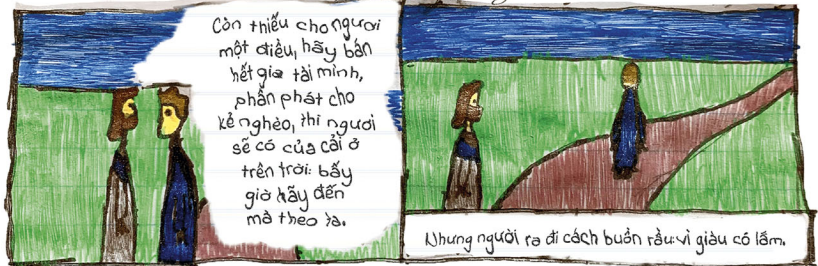 Còn thiếu cho ngươi
một điều, hãy bán
hết gia tài mình,
phân phát cho
kẻ nghèo, thì ngươi
sẽ có của cải ở
trên trời: bấy
giờ hãy đến
mà theo ta.
Nhưng người ra đi cách buồn rầu: vì giàu có lắm.